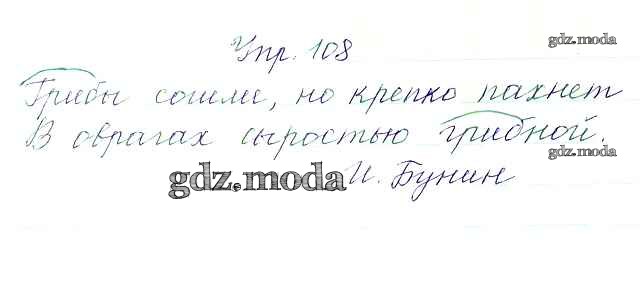 Упр. 108
gdz.moda
Грибы сошли, но крепко пахнет
В оврагах сыростью грибной.
gdz.moda
gdz.moda
И. Бунин